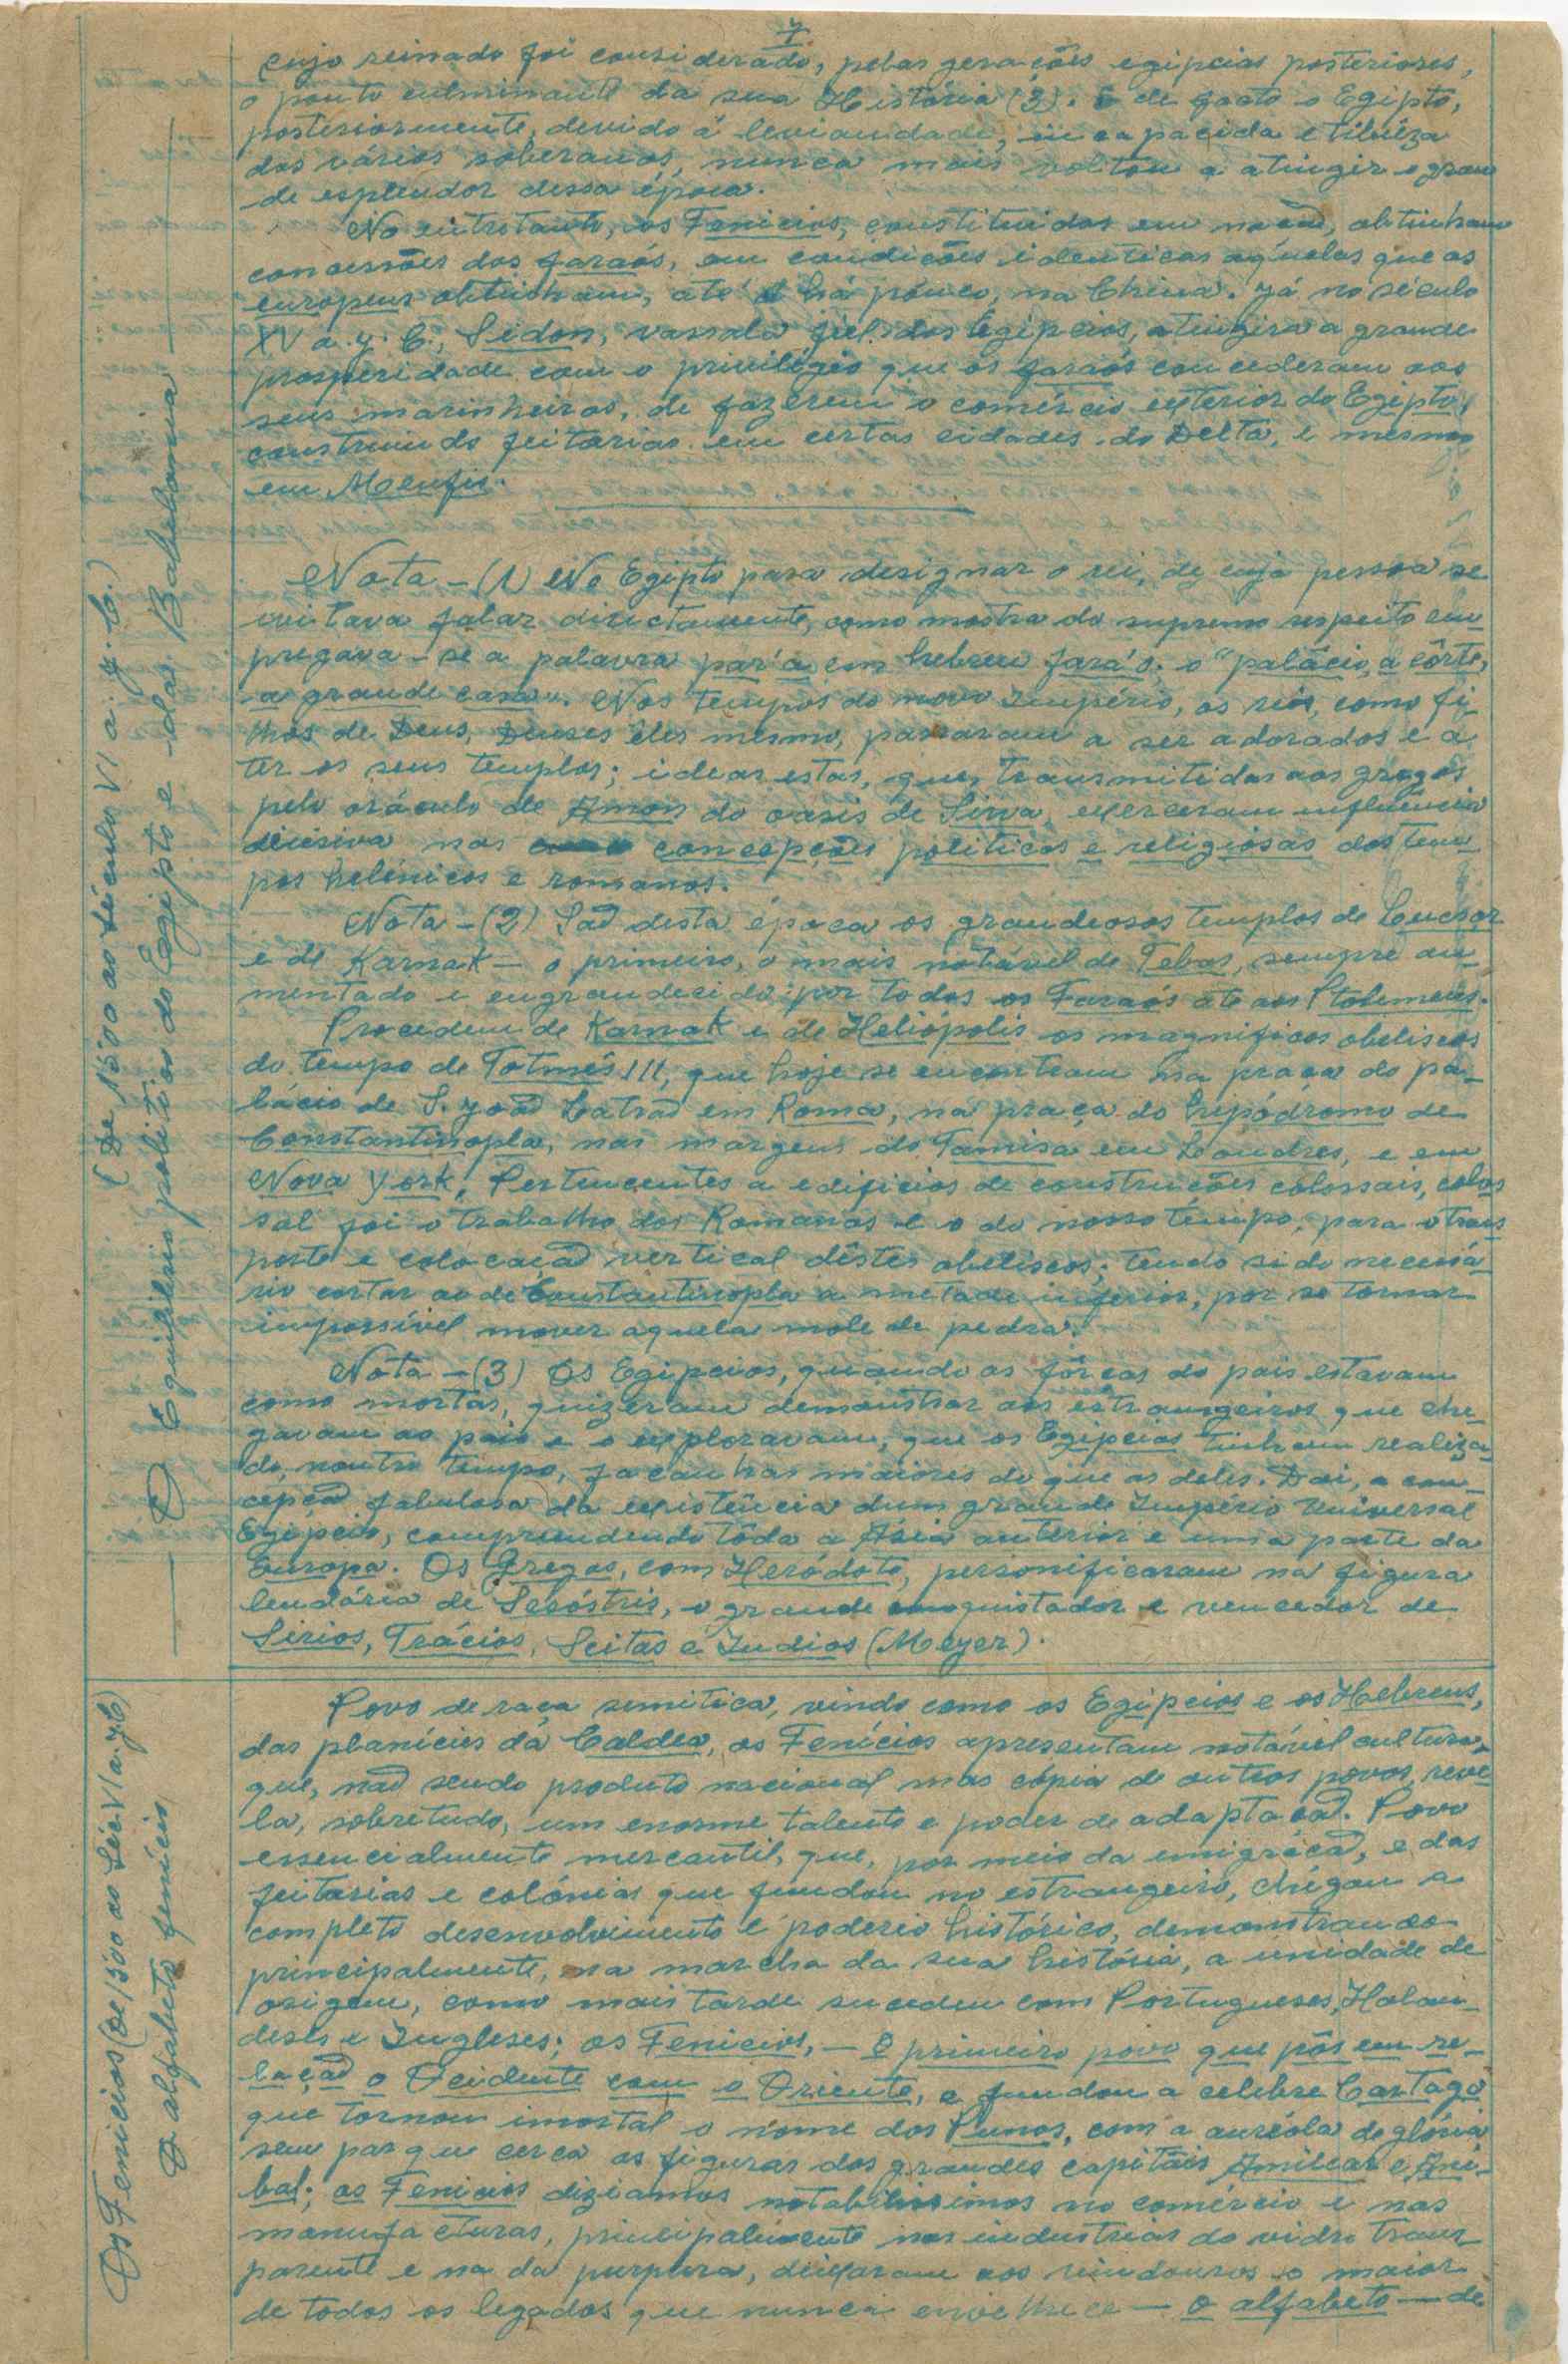 7
cujo reinado foi considerado, pelas gerações egipcias posteriores,
o ponto culminante da sua História (3). E de facto o Egipto,
posteriormente, devido á leviandade, incapacida e tibiêza
dos vários soberanos, nunca mais voltou a atingir o grau
de esplendor dessa época.
No entretanto, os Fenicios, constituidos em nação, obtinham
concessões dos faraós, em condicões identicas aquelas que os
europeus obtinham, até há pouco, na China. Já no século
XV a. J. C., Sidon, vassala fiel dos Egipcios, atingira a grande
prosperidade com o privilégio que os faraós concederam aos
seus marinheiros, de fazerem o comércio exterior do Egipto,
construindo feitorias em certas cidades do Delta, e mesmo
em Menfis.
Nota - (1) No Egipto para designar o rei, de cuja pessoa se
evitava falar directamente, como mostra do supremo respeito em-
pregava-se a palavra par'a em hebreu fará'o; o "palácio, a côrte,
a grande casa". Nos tempos do novo Império, os reis, como fi-
lhos de Deus, Deuses êles mesmo, passaram a ser adorados e a
ter os seus templos; ideas estas, que, transmitidas aos gregos
pelo oráculo de Amon do oasis de Sirva, exerceram influência
decisiva nas concepções politicas e religiosas dos tem-
pos helénicos e romanos.
Nota - (2) São desta época os grandeosos templos de Loucsor
e de Karnak - o primeiro, o mais notável de Tebas, sempre au-
mentado e engrandecido por todos os Faraós ate aos Ptolemeus.
Procedem de Karnak e de Heliópolis os magnificos obeliscos
do tempo de Totmés III, que hoje se encontram na praça do pa-
lácio de S. João Latrão em Roma, na praça do hipódromo de
Constantinopla, nas margens do Tamisa em Londres, e em
Nova York. Pertencentes a edificios de construções colossais, colos
sal foi o trabalho dos Romanos e o do nosso tempo, para o trans
porte e colocação vertical dêstes obeliscos; tendo sido necessá-
rio cortar ao de Constantinopla a metade inferior, por se tornar
impossível mover aquela mole de pedra.
Nota - (3) Os Egipcios, quando as fôrcas do pais estavam
como mortas, quizeram demonstrar aos estrangeiros que che-
gavam ao pais e o exploravam, que os Egipcios tinham realiza-
do, noutro tempo, facanhas maiores do que as deles. Dai, a con-
cepção fabulosa da existência dum grande Império Universal
Egipcio, compreendendo tôda a Ásia anterior e uma parte da
Europa. Os Gregos, com Heródoto, personificaram na figura
lendária de Sesóstris, o grande conquistador e vencedor de
Sirios, Trácios, Scitas e Indios (Meyer).
(De 1500 ao Século VI a. J. C.)
— O Equilibrio politico do Egipto e da Babilonia —
Povo de raça semitica, vindo como os Egipcios e os Hebreus,
das planícies da Caldea, os Fenícios apresentam notável cultura,
que, não sendo produto nacional mas cópia de outros povos, reve-
la, sobretudo, um enorme talento e poder de adaptacão. Povo
essencialmente mercantil, que, por meio da emigração, e das
feitorias e colónias que fundou no estrangeiro, chegou a
completo desenvolvimento e poderio histórico, demonstrando
principalmente, na marcha da sua história, a unidade de
origem, como mais tarde sucedeu com Portugueses, Holan-
deses e Ingleses; os Fenicios, - o primeiro povo que pôs em re-
lação o Ocidente com o Oriente, e fundou a celebre Cartago
que tornou imortal o nome dos Punos, com a auréola de glória
sem par que cerca as figuras dos grandes capitães Amilcar e Ani-
bal; os Fenicios diziamos notabilissimos no comércio e nas
manufacturas, principalmente nas industrias do vidro trans-
parente e na da purpura, deixaram aos vindouros o maior
de todos os legados que nunca envelhece - o alfabeto - de
Os Fenicios (De 1500 ao Séc. VI a. J. C)
O alfabeto fenicio